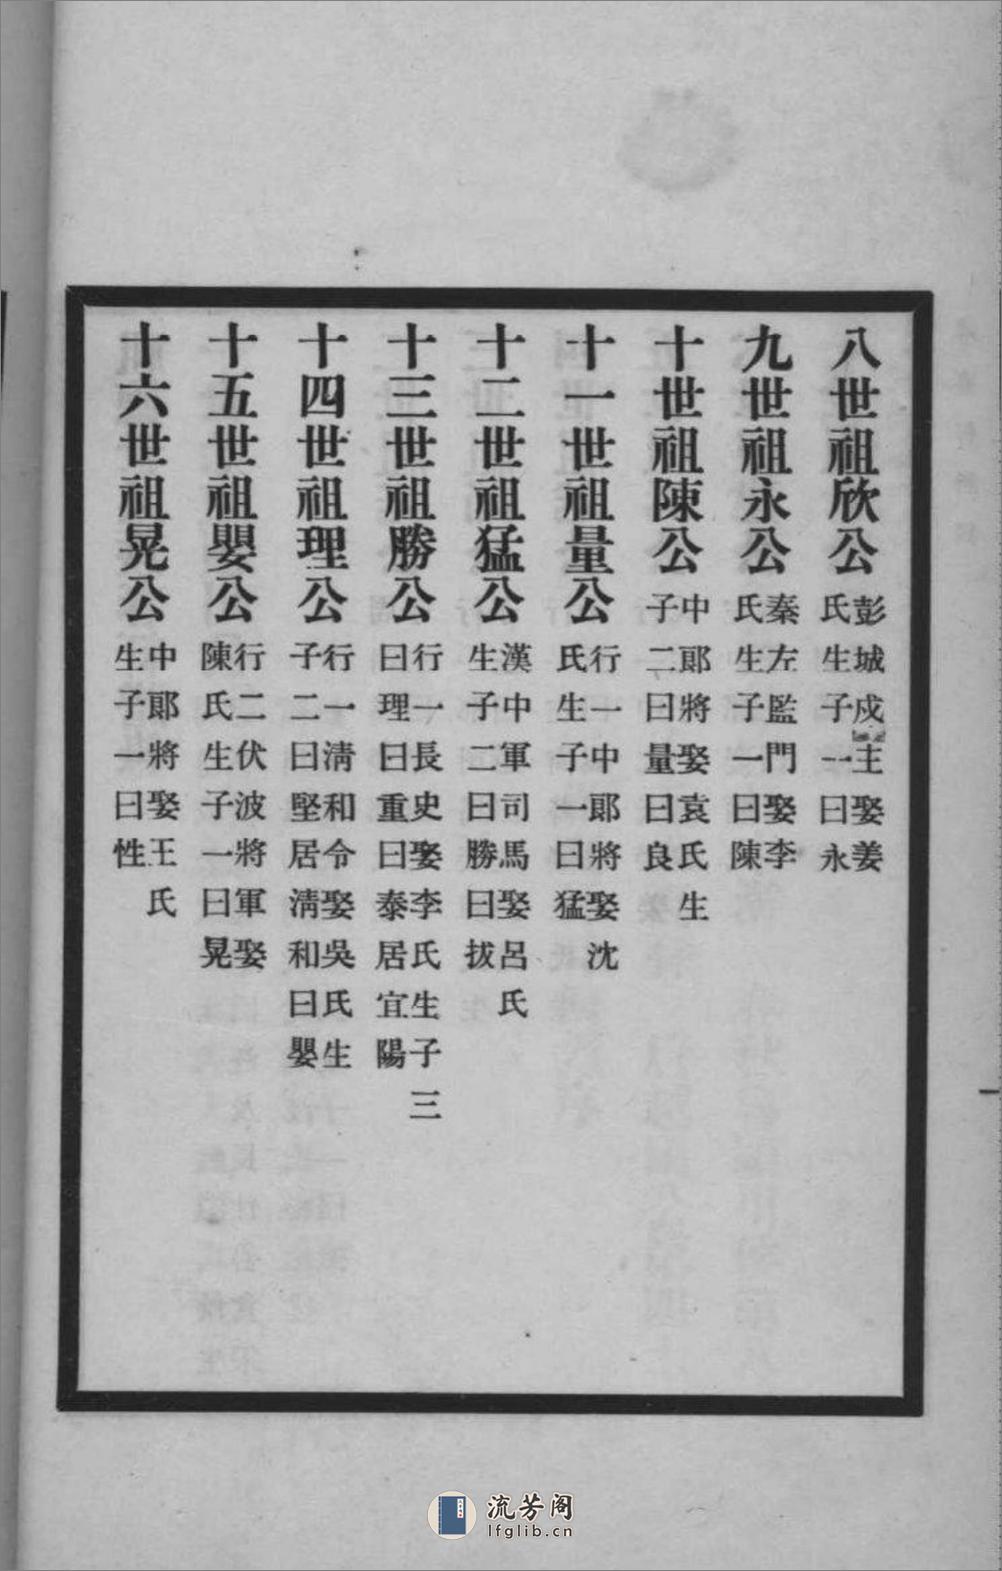 八世祖欣公彭城戍主娶姜氏生子一曰永
九世祖永公秦左監門娶李氏生子一曰陳
十世祖陳公中郞將娶袁氏生子二曰量曰良
十一世祖量公行一中郞將娶沈氏生子一曰猛
十二世祖猛公漢中軍司馬娶呂氏生子二曰勝曰拔
十三世祖勝公行一長史娶李氏生子三曰理曰重曰泰居宜陽
十四世祖理公行一淸和令娶吳氏生子二曰堅居淸和曰嬰
十五世祖嬰公行二伏波將軍娶陳氏生子一曰晃
十六世祖晃公中郞將娶王氏生子一曰性
流芳阁
lfglib.cn